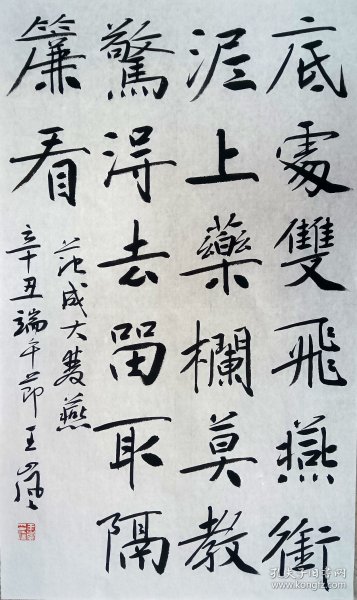 底處雙飛燕銜
泥上藥欄莫教
驚得去留取隔
簾看
范成大雙燕
辛丑端午節王嵐
孔夫子旧书网
www.kongfz.com